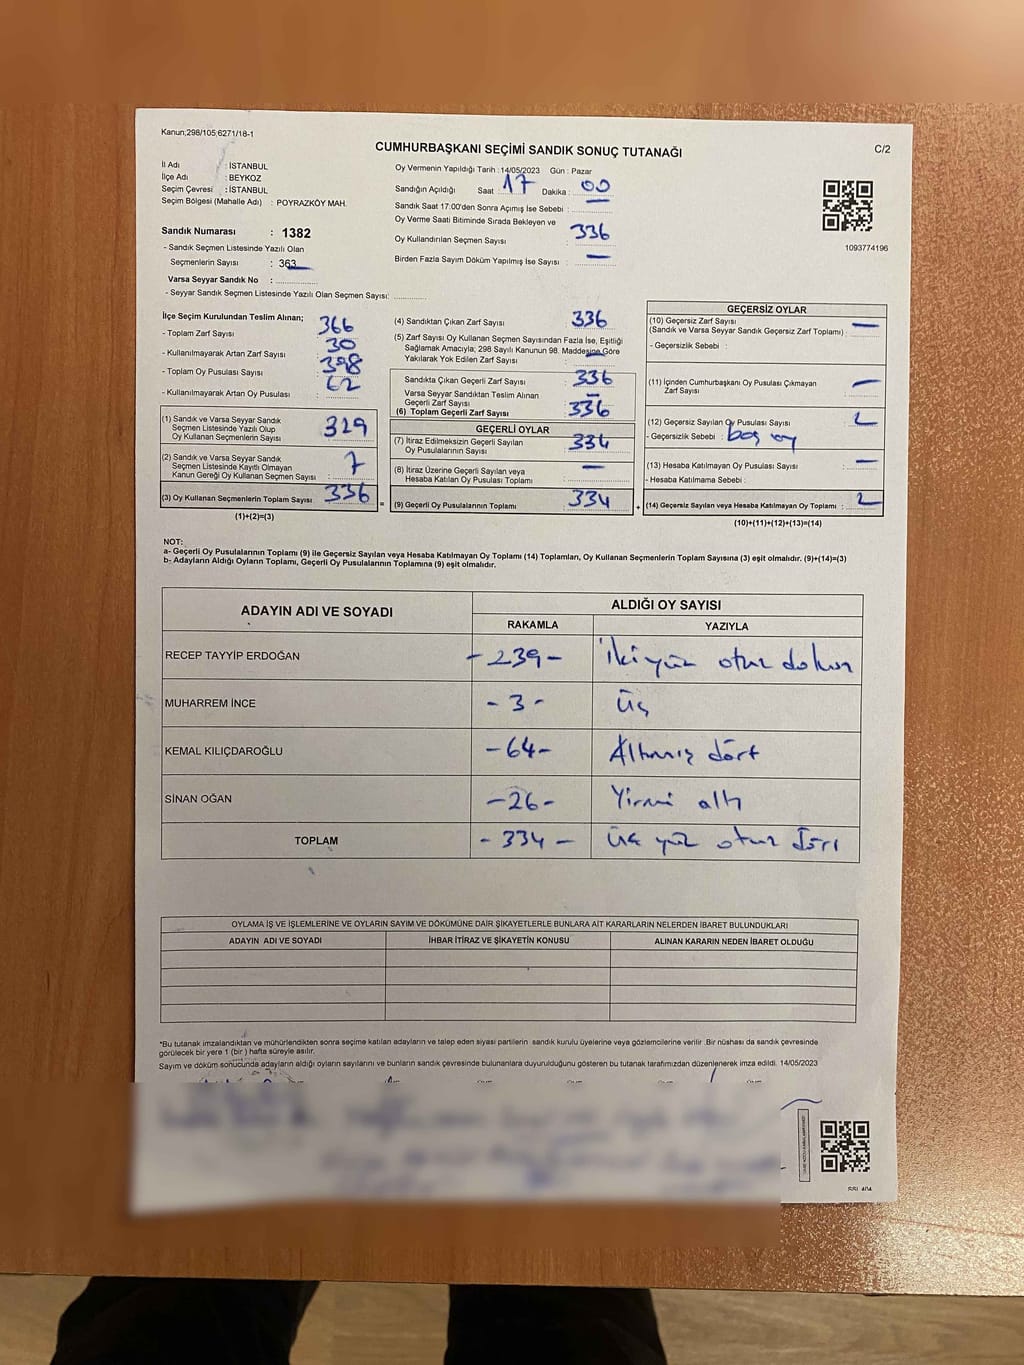 Kanun;298/105;6271/18-1
CUMHURBAŞKANI SEÇİMİ SANDIK SONUÇ TUTANAĞI
C/2
İl Adı : İSTANBUL
İlçe Adı : BEYKOZ
Seçim Çevresi : İSTANBUL
Seçim Bölgesi (Mahalle Adı) : POYRAZKÖY MAH.
Sandık Numarası : 1382
- Sandık Seçmen Listesinde Yazılı Olan
Seçmenlerin Sayısı : 363
Varsa Seyyar Sandık No :
- Seyyar Sandık Seçmen Listesinde Yazılı Olan Seçmen Sayısı:
Oy Vermenin Yapıldığı Tarih : 14/05/2023 Gün : Pazar
Sandığın Açıldığı Saat : 17 Dakika : 00
Sandık Saat 17:00'den Sonra Açımış İse Sebebi :
Oy Verme Saati Bitiminde Sırada Bekleyen ve
Oy Kullandırılan Seçmen Sayısı : 336
Birden Fazla Sayım Döküm Yapılmış İse Sayısı : —
1093774196
İlçe Seçim Kurulundan Teslim Alınan;
- Toplam Zarf Sayısı : 366
- Kullanılmayarak Artan Zarf Sayısı : 30
- Toplam Oy Pusulası Sayısı : 398
- Kullanılmayarak Artan Oy Pusulası : 62
(1) Sandık ve Varsa Seyyar Sandık
Seçmen Listesinde Yazılı Olup
Oy Kullanan Seçmenlerin Sayısı : 329
(2) Sandık ve Varsa Seyyar Sandık
Seçmen Listesinde Kayıtlı Olmayan
Kanun Gereği Oy Kullanan Seçmen Sayısı : 7
(3) Oy Kullanan Seçmenlerin Toplam Sayısı : 336
(1)+(2)=(3)
(4) Sandıktan Çıkan Zarf Sayısı : 336
(5) Zarf Sayısı Oy Kullanan Seçmen Sayısından Fazla İse, Eşitliği
Sağlamak Amacıyla; 298 Sayılı Kanunun 98. Maddesine Göre
Yakılarak Yok Edilen Zarf Sayısı : —
Sandıkta Çıkan Geçerli Zarf Sayısı : 336
Varsa Seyyar Sandıktan Teslim Alınan
Geçerli Zarf Sayısı : —
(6) Toplam Geçerli Zarf Sayısı : 336
GEÇERLİ OYLAR
(7) İtiraz Edilmeksizin Geçerli Sayılan
Oy Pusulalarının Sayısı : 334
(8) İtiraz Üzerine Geçerli Sayılan veya
Hesaba Katılan Oy Pusulası Toplamı : —
(9) Geçerli Oy Pusulalarının Toplamı : 334
GEÇERSİZ OYLAR
(10) Geçersiz Zarf Sayısı
(Sandık ve Varsa Seyyar Sandık Geçersiz Zarf Toplamı) : —
- Geçersizlik Sebebi :
(11) İçinden Cumhurbaşkanı Oy Pusulası Çıkmayan
Zarf Sayısı : —
(12) Geçersiz Sayılan Oy Pusulası Sayısı : 2
- Geçersizlik Sebebi : boş oy
(13) Hesaba Katılmayan Oy Pusulası Sayısı : —
- Hesaba Katılmama Sebebi :
(14) Geçersiz Sayılan veya Hesaba Katılmayan Oy Toplamı : 2
(10)+(11)+(12)+(13)=(14)
NOT:
a- Geçerli Oy Pusulalarının Toplamı (9) ile Geçersiz Sayılan veya Hesaba Katılmayan Oy Toplamı (14) Toplamları, Oy Kullanan Seçmenlerin Toplam Sayısına (3) eşit olmalıdır. (9)+(14)=(3)
b- Adayların Aldığı Oyların Toplamı, Geçerli Oy Pusulalarının Toplamına (9) eşit olmalıdır.
ADAYIN ADI VE SOYADI ALDIĞI OY SAYISI
RAKAMLA YAZIYLA
RECEP TAYYİP ERDOĞAN - 239 - İkiyüz otuz dokuz
MUHARREM İNCE - 3 - üç
KEMAL KILIÇDAROĞLU - 64 - Altmış dört
SİNAN OĞAN - 26 - Yirmi altı
TOPLAM - 334 - üç yüz otuz dört
OYLAMA İŞ VE İŞLEMLERİNE VE OYLARIN SAYIM VE DÖKÜMÜNE DAİR ŞİKAYETLERLE BUNLARA AİT KARARLARIN NELERDEN İBARET BULUNDUKLARI
ADAYIN ADI VE SOYADI İHBAR İTİRAZ VE ŞİKAYETİN KONUSU ALINAN KARARIN NEDEN İBARET OLDUĞU
*Bu tutanak imzalandıktan ve mühürlendikten sonra seçime katılan adayların ve talep eden siyasi partilerin sandık kurulu üyelerine veya gözlemcilerine verilir .Bir nüshası da sandık çevresinde
görülecek bir yere 1 (bir ) hafta süreyle asılır.
Sayım ve döküm sonucunda adayların aldığı oyların sayılarını ve bunların sandık çevresinde bulunanlara duyurulduğunu gösteren bu tutanak tarafımızdan düzenlenerek imza edildi. 14/05/2023